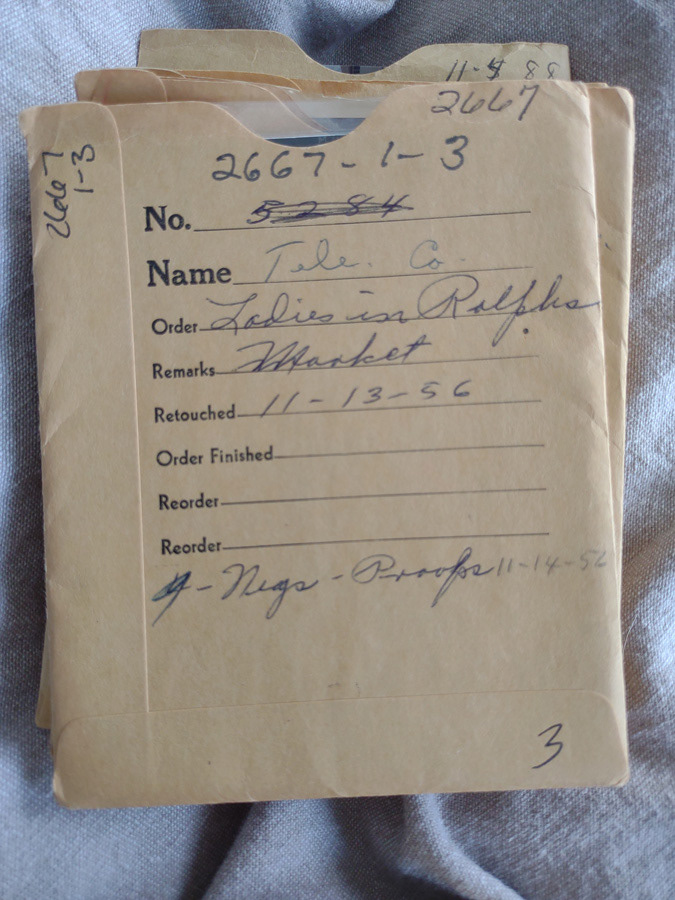 11-8 88
2667
2667-1-3
2667
1-3
No. 5284
Name Tele. Co.
Order Ladies in Ralphs
Remarks Market
Retouched 11-13-56
Order Finished
Reorder
Reorder
4-Negs - Proofs 11-14-56
3